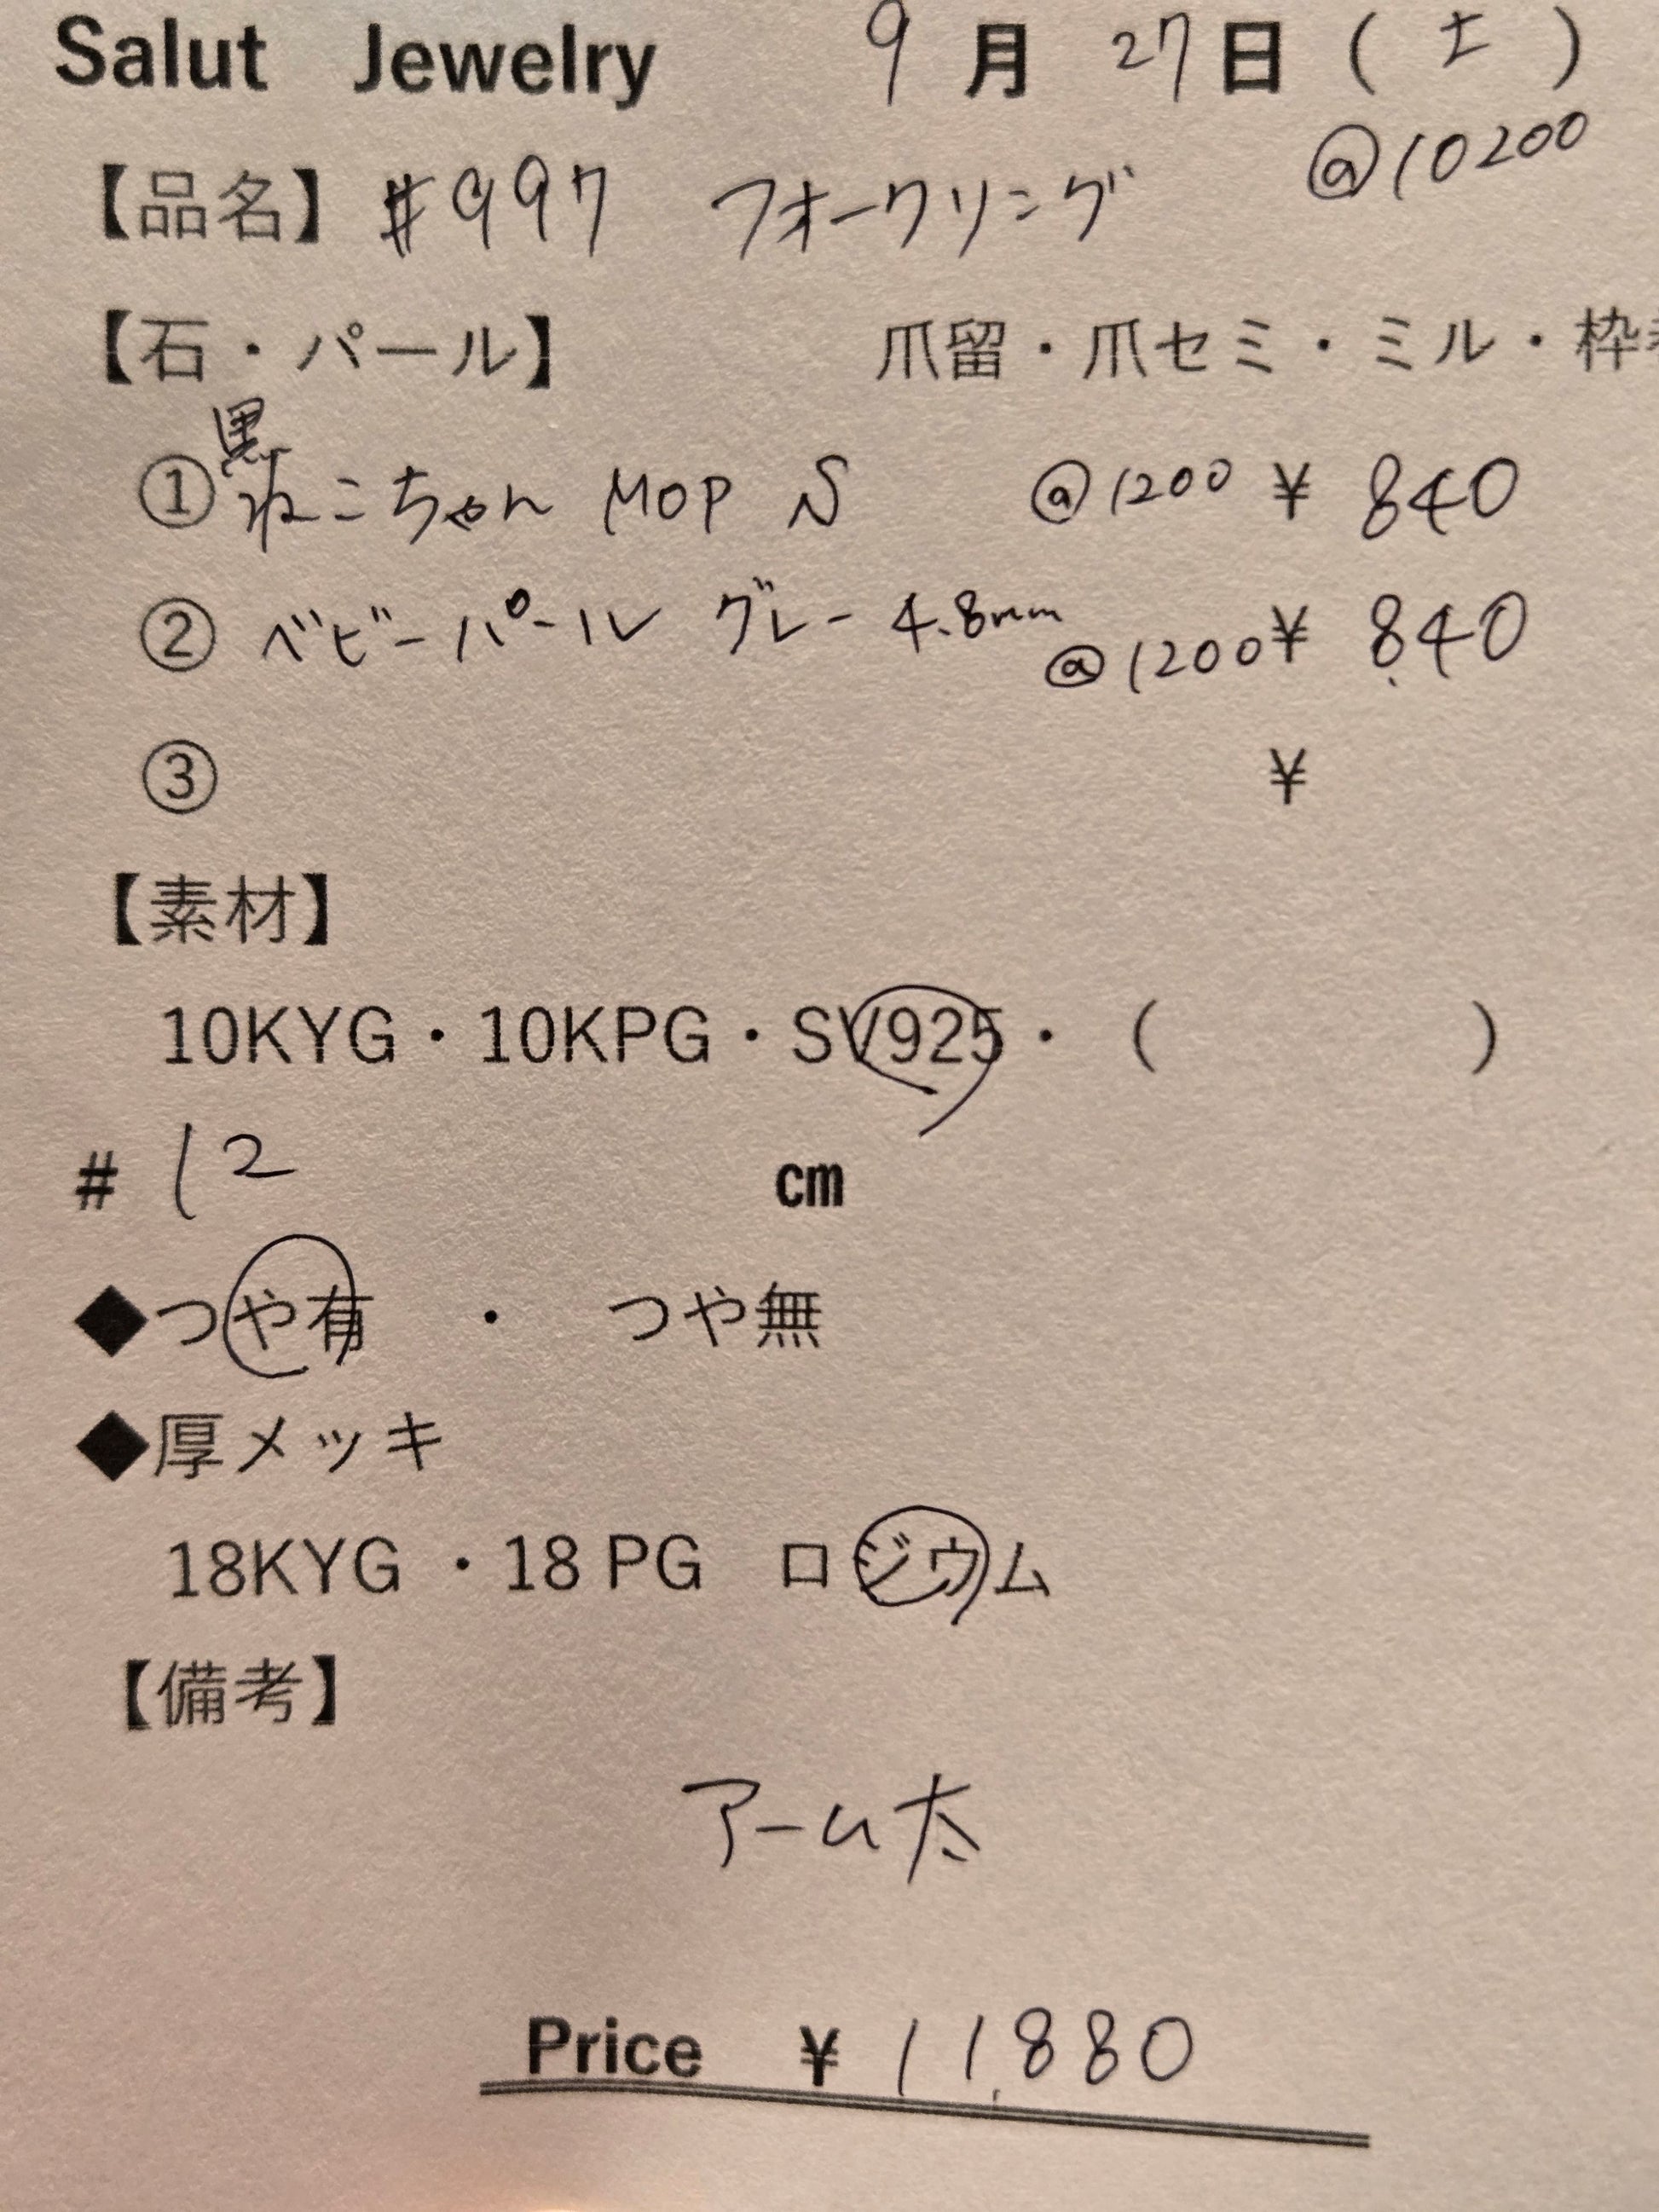 Salut Jewelry 9月27日(土)
@10200
【品名】#997 フォークリング
【石・パール】 爪留・爪セミ・ミル・枠
黒
①ねこちゃん MOP S @1200 ¥ 840
②ベビーパール グレー 4.8mm @1200 ¥ 840
③ ¥
【素材】
10KYG・10KPG・SV925・( )
# 12 cm
◆つや有 ・ つや無
◆厚メッキ
18KYG ・18 PG ロジウム
【備考】
アーム太
Price ¥ 11,880